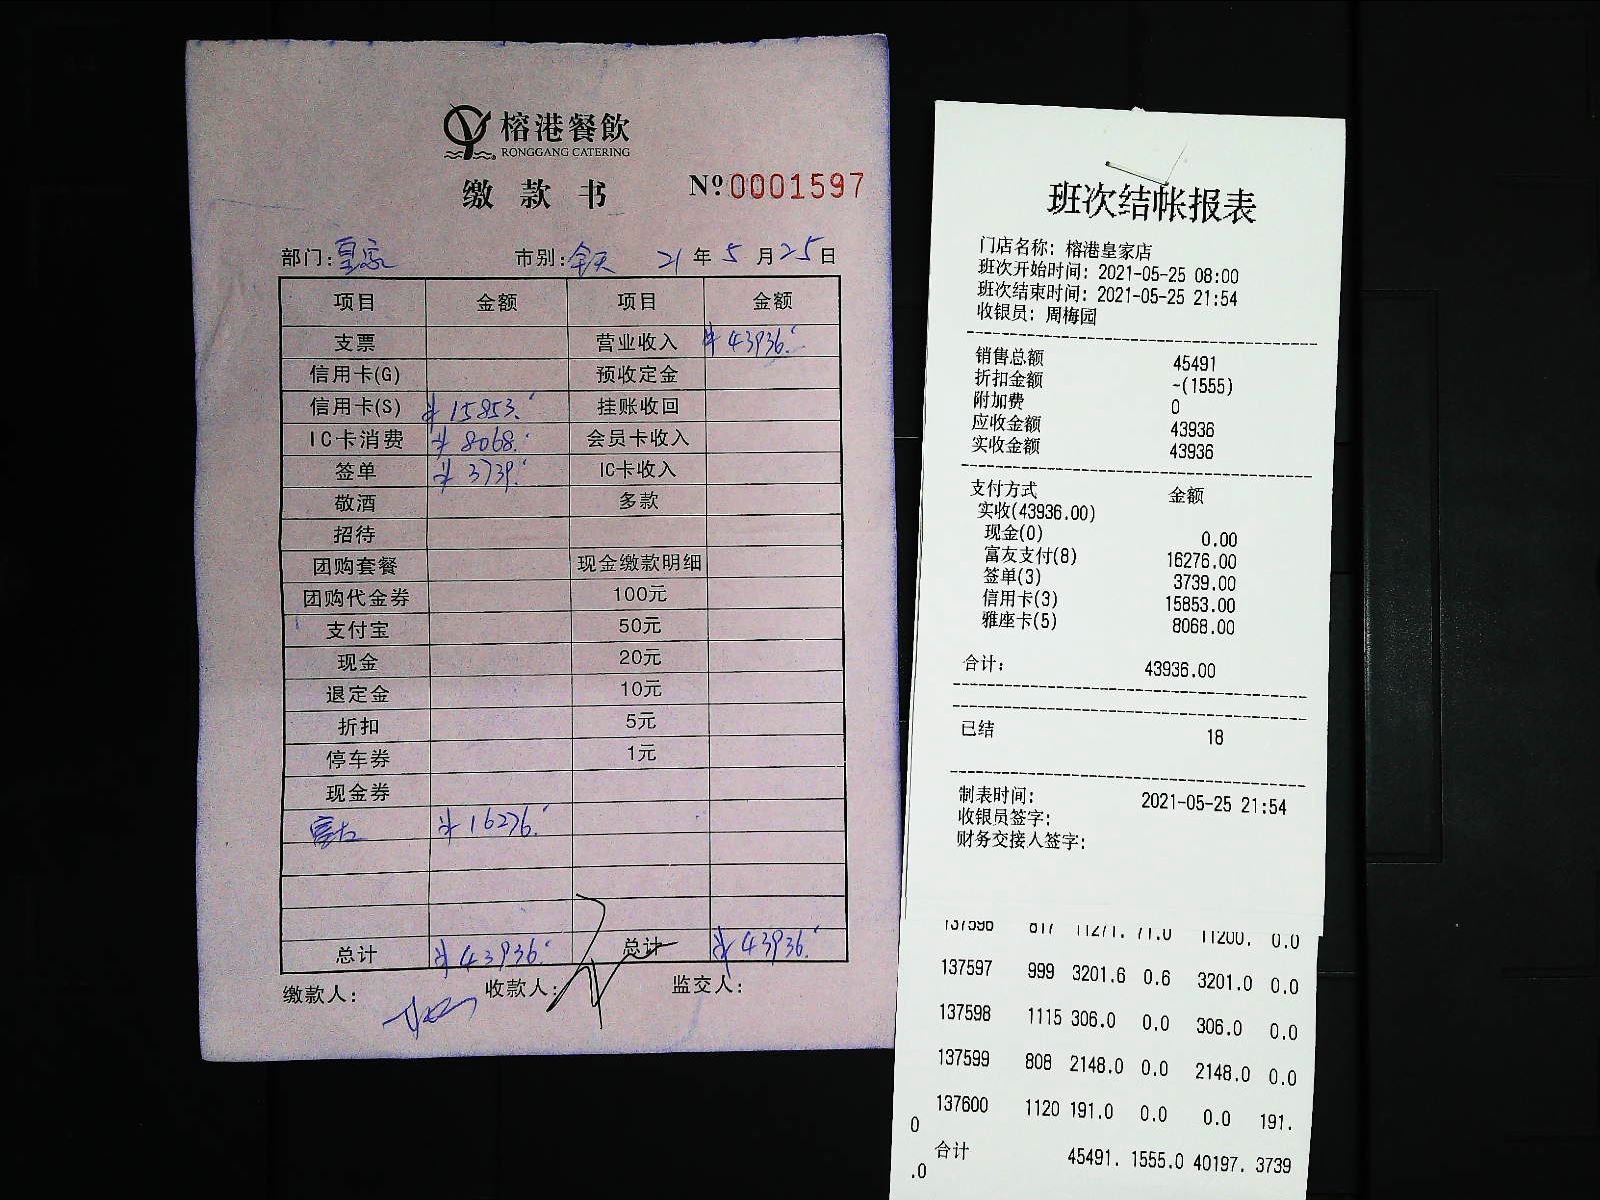 榕港餐飲
RONGGANG CATERING
缴款书 Nº 0001597
部门: 皇家 市别: 全天 21 年 5 月 25 日
项目 金额 项目 金额
支票 营业收入 ¥43936.
信用卡(G) 预收定金
信用卡(S) ¥15853. 挂账收回
IC卡消费 ¥8068. 会员卡收入
签单 ¥3739. IC卡收入
敬酒 多款
招待
团购套餐 现金缴款明细
团购代金券 100元
支付宝 50元
现金 20元
退定金 10元
折扣 5元
停车券 1元
现金券
富友 ¥16276.
总计 ¥43936. 总计 ¥43936.
缴款人: 收款人: 监交人:
班次结帐报表
门店名称: 榕港皇家店
班次开始时间: 2021-05-25 08:00
班次结束时间: 2021-05-25 21:54
收银员: 周梅园
销售总额 45491
折扣金额 -(1555)
附加费 0
应收金额 43936
实收金额 43936
支付方式 金额
实收(43936.00)
现金(0) 0.00
富友支付(8) 16276.00
签单(3) 3739.00
信用卡(3) 15853.00
雅座卡(5) 8068.00
合计: 43936.00
已结 18
制表时间: 2021-05-25 21:54
收银员签字:
财务交接人签字:
137596 817 11271. 71.0 11200. 0.0
137597 999 3201.6 0.6 3201.0 0.0
137598 1115 306.0 0.0 306.0 0.0
137599 808 2148.0 0.0 2148.0 0.0
137600 1120 191.0 0.0 0.0 191.
0
合计 45491. 1555.0 40197. 3739
.0